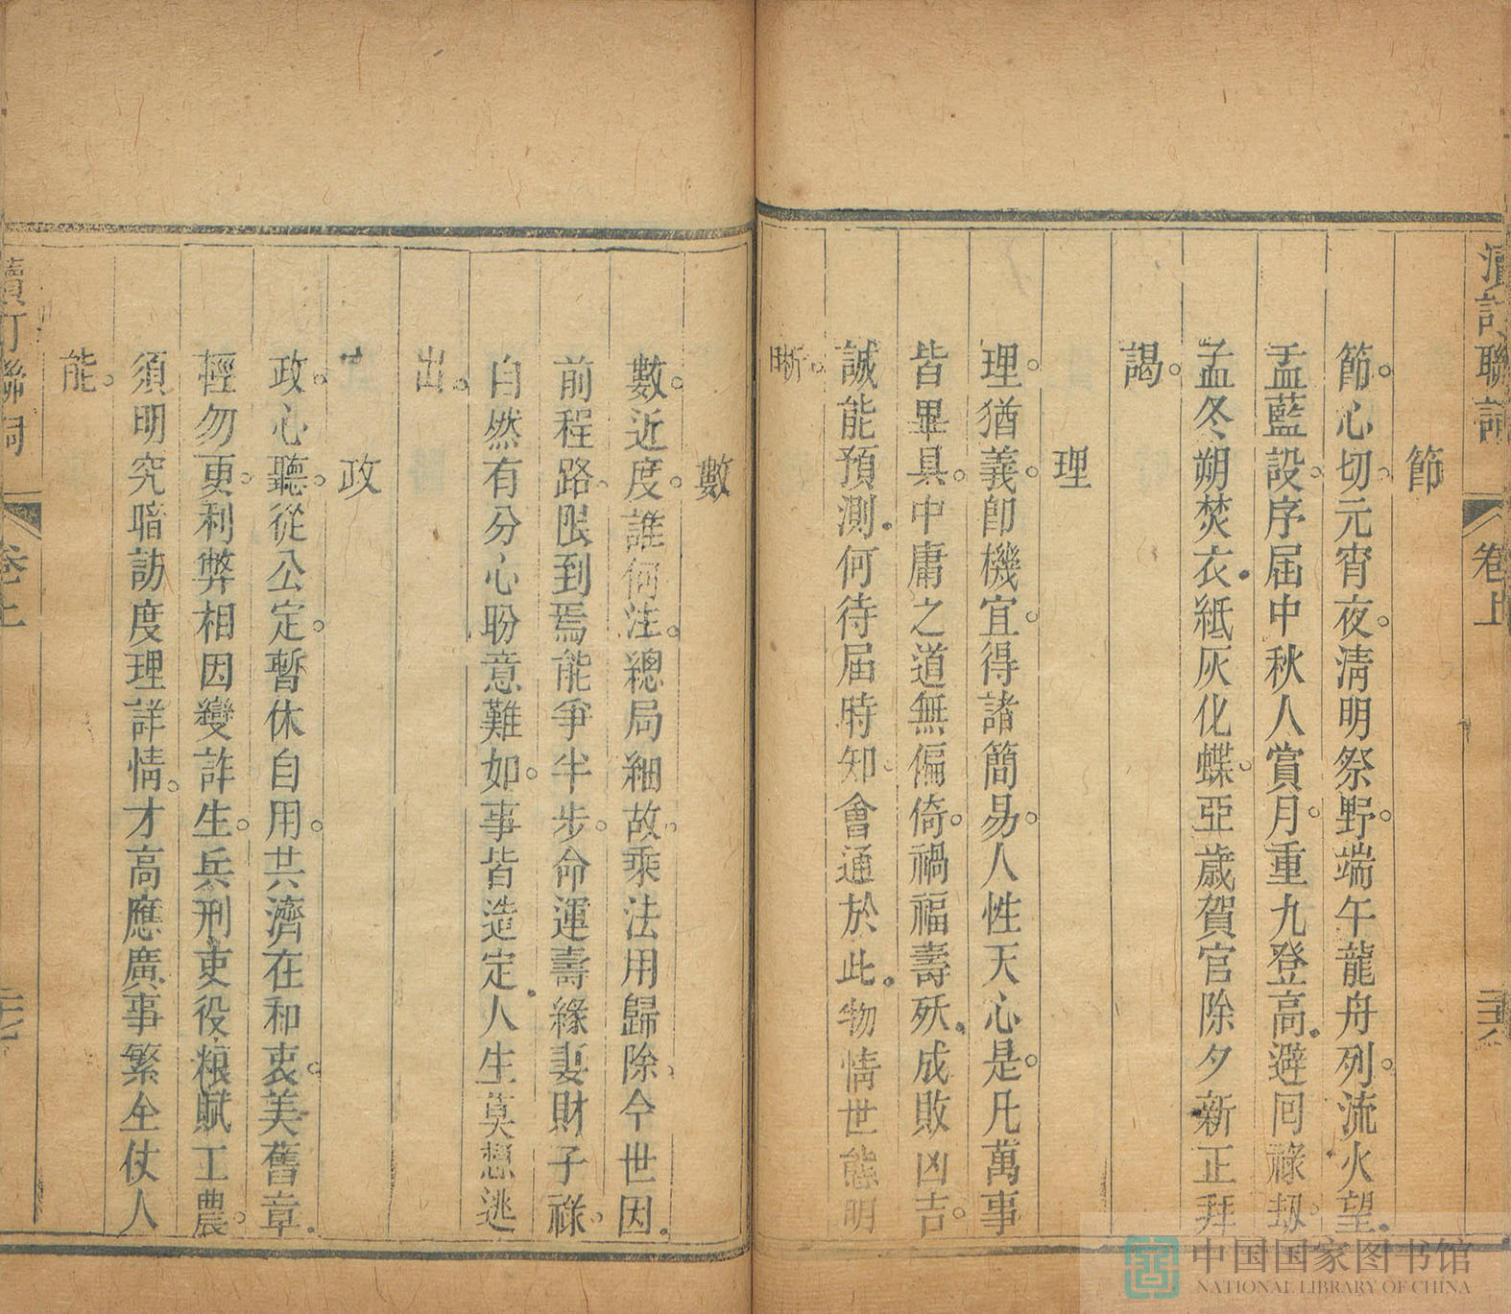 續訂聯詞
卷上
節
節。心切。元宵夜。清明祭野。端午龍舟列。流火望.
盂藍設。序屆中秋人賞月。重九登高.避囘祿刼。
孟冬朔焚衣.紙灰化蝶。亞歲賀官除夕新正拜
謁。
理
理。猶義。卽機宜。得諸簡易。人性天心是。凡萬事
皆畢具。中庸之道無偏倚。禍福壽殀.成敗凶吉。
誠能預測.何待屆時知。會通於此.物情世態明
晣。
數
數。近度。誰何注。總局細故。乘法用歸除。今世因.
前程路。限到焉能爭半步。命運壽緣妻財子祿。
自然有分心盼意難如。事皆造定.人生莫想逃
出。
政
政。心聽。從公定。暫休自用。共濟在和衷。美舊章.
輕勿更。利弊相因變詐生。兵刑吏役粮賦工農。
須明究暗訪度理詳情。才高應廣事繁全仗人
能。
續訂聯詞
卷上
中国国家图书馆
NATIONAL LIBRARY OF CHINA